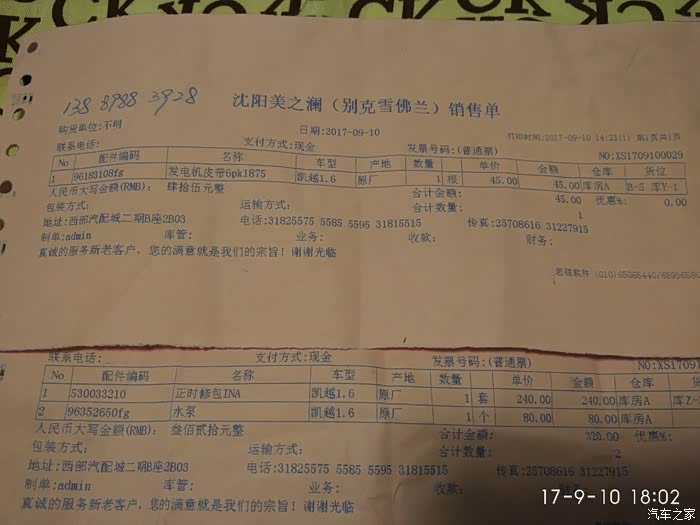 138 8988 3928
沈阳美之澜（别克雪佛兰）销售单
购货单位:不明
日期:2017-09-10
打印时间:2017-09-10 14:23(1) 第1页共1页
联系电话: 支付方式:现金 发票号码:(普通票) NO:XS1709100029
No 配件编码 名称 车型 产地 数量 单价 金额 仓库 货位
1 96183108fg 发电机皮带6pk1875 凯越1.6 原厂 1 根 45.00 45.00 库房A B-5 库Y-1
人民币大写金额(RMB): 肆拾伍元整 合计金额: 45.00 优惠%: 0.00
包装方式: 运输方式: 合计数量: 1
地址:西部汽配城二期B座2B03 电话:31825575 5585 5595 31815515 传真:25708616 31227915
制单:admin 库管: 业务: 收款: 财务:
真诚的服务新老客户，您的满意就是我们的宗旨！谢谢光临
思锐软件 (010)65065440/
联系电话: 支付方式:现金 发票号码:(普通票) NO:XS1709
No 配件编码 名称 车型 产地 数量 单价 金额 仓库
1 530033210 正时修包INA 凯越1.6 原厂 1 套 240.00 240.00 库房A 库Z-
2 96352650fg 水泵 凯越1.6 原厂 1 个 80.00 80.00 库房A
人民币大写金额(RMB): 叁佰贰拾元整 合计金额: 320.00 优惠%:
包装方式: 运输方式: 合计数量: 2
地址:西部汽配城二期B座2B03 电话:31825575 5585 5595 31815515 传真:25708616 31227915
制单:admin 库管: 业务: 收款:
真诚的服务新老客户，您的满意就是我们的宗旨！谢谢光临
17-9-10 18:02
汽车之家